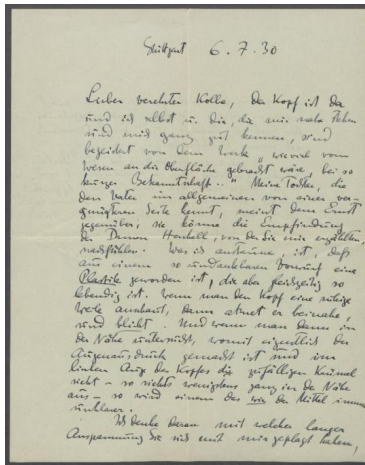 Stuttgart 6.7.30
Lieber verehrter Kolle, der Kopf ist da
und ich selbst u. die, die mir nahe stehen
und mich ganz gut kennen, sind
begeistert von dem Werk "wieviel vom
Wesen an die Oberfläche gebracht wäre, bei so
kurzer Bekanntschaft.." Meine Tochter, die
den Vater im allgemeinen von einer ver-
gnügteren Seite kennt, meint dem Ernst
gegenüber, sie könne die Empfindung
der Damen, von der Sie mir erzählten,
nachfühlen. Was ich anstaune, ist, daß
aus einem so undankbaren Vorwurf eine
Plastik geworden ist, die aber gleichzeitig so
lebendig ist. Wenn man den Kopf eine ruhige
Weile anschaut, dann atmet er beinahe,
und blickt. Und wenn man dann in
der Nähe untersucht, womit eigentlich der
Augenausdruck gemacht ist und im
linken Aug des Kopfes die zufälligen Krümel
sieht - so sieht's wenigstens ganz in der Nähe
aus - so wird einem das wie der Mittel immer
unklarer.
Ich denke daran mit welcher langen
Anspannung Sie sich mit mir geplagt haben,